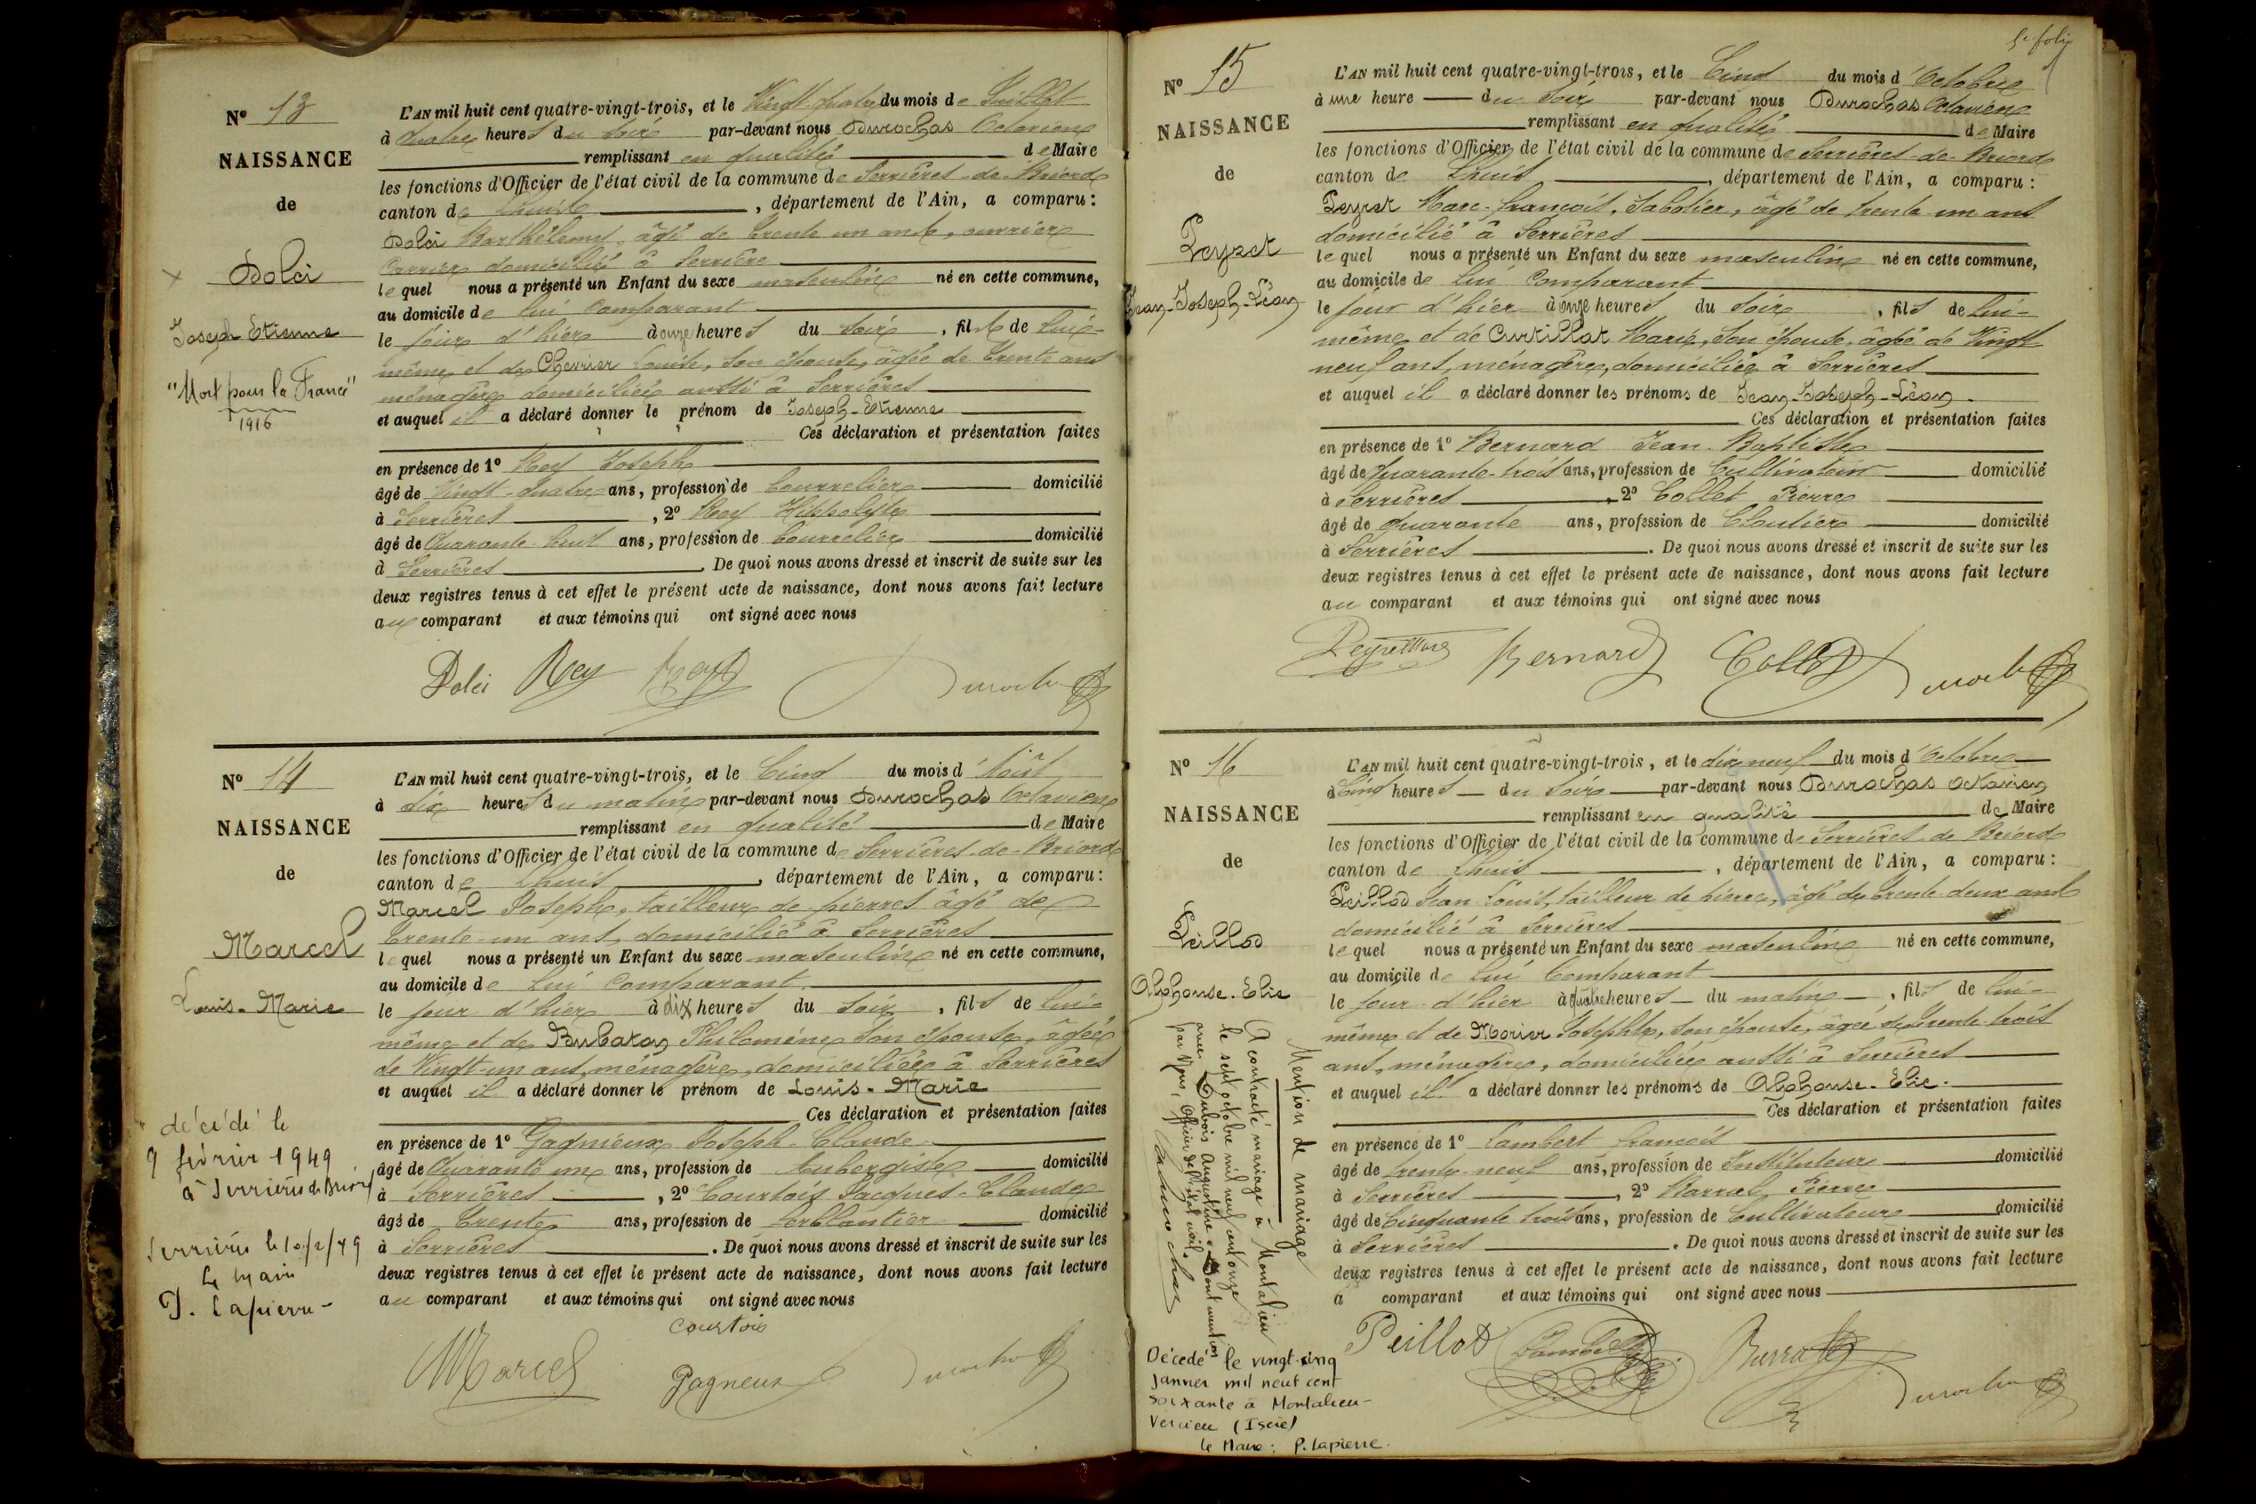 Nº 13
NAISSANCE
de
Dolci
Joseph Etienne
"Mort pour la France"
1916
L'AN mil huit cent quatre-vingt-trois, et le Vingt quatre du mois de Juillet
à quatre heures du soir par-devant nous Durochas Octavien
remplissant en qualité de Maire
les fonctions d'Officier de l'état civil de la commune de Serrières-de-Briord
canton de Lhuis, département de l'Ain, a comparu :
Dolci Barthélemy, âgé de trente un ans, ouvrier
carrier domicilié à Serrière
lequel nous a présenté un Enfant du sexe masculin né en cette commune,
au domicile de lui comparant
le jour d'hier à onze heures du soir, fils de lui-
même et de Chevrier Louise, son épouse, âgée de trente ans
ménagère domiciliée aussi à Serrières
et auquel il a déclaré donner le prénom de Joseph-Etienne
Ces déclaration et présentation faites
en présence de 1º Rey Joseph
âgé de Vingt-quatre ans, profession de bourrelier domicilié
à Serrières, 2º Rey Hippolyte
âgé de Quarante huit ans, profession de bourrelier domicilié
à Serrières. De quoi nous avons dressé et inscrit de suite sur les
deux registres tenus à cet effet le présent acte de naissance, dont nous avons fait lecture
au comparant et aux témoins qui ont signé avec nous
Dolci Rey Rey Durochas
Nº 14
NAISSANCE
de
Marcel
Louis-Marie
décédé le
9 février 1949
à Serrières de Briord
Serrières le 10/2/49
Le Maire
P. Lapierre
L'AN mil huit cent quatre-vingt-trois, et le Cinq du mois d'Août
à dix heures du matin par-devant nous Durochas Octavien
remplissant en qualité de Maire
les fonctions d'Officier de l'état civil de la commune de Serrières-de-Briord
canton de Lhuis, département de l'Ain, a comparu :
Marcel Joseph, tailleur de pierres âgé de
trente-un ans, domicilié à Serrières
lequel nous a présenté un Enfant du sexe masculin né en cette commune,
au domicile de lui comparant
le jour d'hier à dix heures du soir, fils de lui-
même et de Bubaton Philomène son épouse, âgée
de Vingt-un ans, ménagère, domiciliée à Serrières
et auquel il a déclaré donner le prénom de Louis-Marie
Ces déclaration et présentation faites
en présence de 1º Gagnieux Joseph-Claude
âgé de Quarante un ans, profession de Aubergiste domicilié
à Serrières, 2º Courtois Jacques-Claude
âgé de Trente ans, profession de ferblantier domicilié
à Serrières. De quoi nous avons dressé et inscrit de suite sur les
deux registres tenus à cet effet le présent acte de naissance, dont nous avons fait lecture
au comparant et aux témoins qui ont signé avec nous
Courtois
Marcel Gagneux Durochas
5e folio
Nº 15
NAISSANCE
de
Peyret
Jean-Joseph-Léon
L'AN mil huit cent quatre-vingt-trois, et le Cinq du mois d'Octobre
à une heure du soir par-devant nous Durochas Octavien
remplissant en qualité de Maire
les fonctions d'Officier de l'état civil de la commune de Serrières-de-Briord
canton de Lhuis, département de l'Ain, a comparu :
Peyret Marc-François, Sabotier, âgé de trente-un ans
domicilié à Serrières
lequel nous a présenté un Enfant du sexe masculin né en cette commune,
au domicile de lui comparant
le jour d'hier à onze heures du soir, fils de lui-
même et de Curtillat Marie, son épouse, âgée de Vingt
neuf ans, ménagère, domiciliée à Serrières
et auquel il a déclaré donner les prénoms de Jean-Joseph-Léon.
Ces déclaration et présentation faites
en présence de 1º Bernard Jean-Baptiste
âgé de quarante-trois ans, profession de Cultivateur domicilié
à Serrières, 2º Collet Pierre
âgé de quarante ans, profession de Cloutier domicilié
à Serrières. De quoi nous avons dressé et inscrit de suite sur les
deux registres tenus à cet effet le présent acte de naissance, dont nous avons fait lecture
au comparant et aux témoins qui ont signé avec nous
Bernard Collet Durochas
Nº 16
NAISSANCE
de
Peillod
Alphonse-Elie
Mention de mariage
A contracté mariage à Montalieu
le sept octobre mil neuf cent onze
avec Dubois Augustine. Dont mention
par Nous, Officier de l'état civil.
Décédé le vingt-cinq
Janvier mil neuf cent
soixante à Montalieu-
Vercieu (Isère)
Le Maire : P. Lapierre.
L'AN mil huit cent quatre-vingt-trois, et le dix neuf du mois d'Octobre
à Cinq heures du soir par-devant nous Durochas Octavien
remplissant en qualité de Maire
les fonctions d'Officier de l'état civil de la commune de Serrières-de-Briord
canton de Lhuis, département de l'Ain, a comparu :
Peillod Jean Louis, tailleur de pierre, âgé de trente-deux ans
domicilié à Serrières
lequel nous a présenté un Enfant du sexe masculin né en cette commune,
au domicile de lui Comparant
le jour d'hier à quatre heures du matin, fils de lui-
même et de Morier Josephte, son épouse, âgée de trente-trois
ans, ménagère, domiciliée aussi à Serrières
et auquel il a déclaré donner les prénoms de Alphonse-Elie.
Ces déclaration et présentation faites
en présence de 1º Lambert François
âgé de trente-neuf ans, profession de Instituteur domicilié
à Serrières, 2º Barral Pierre
âgé de Cinquante trois ans, profession de Cultivateur domicilié
à Serrières. De quoi nous avons dressé et inscrit de suite sur les
deux registres tenus à cet effet le présent acte de naissance, dont nous avons fait lecture
a comparant et aux témoins qui ont signé avec nous
Peillod Lambert Barral Durochas